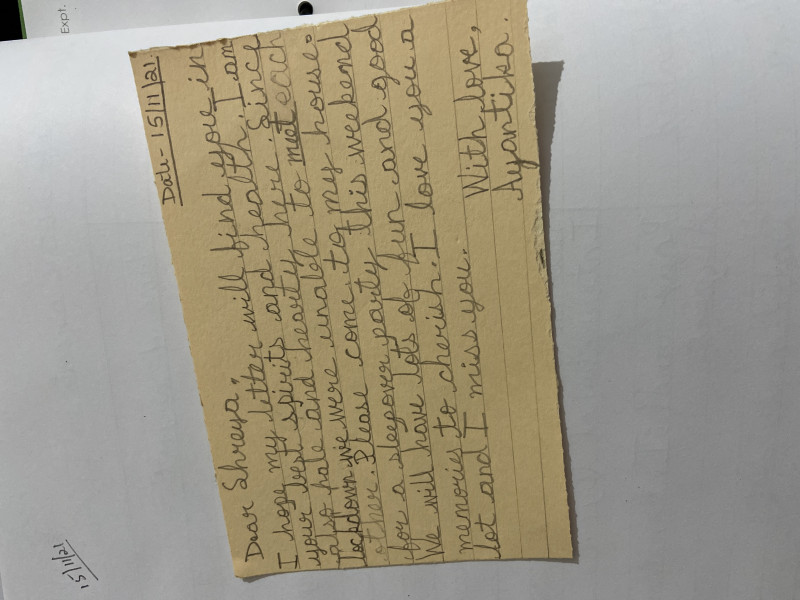 Expt.
Date- 15/11/21
Dear Shreya,
I hope my letter will find you in
your best spirits and health. I am
also hale and hearty here. Since
lockdown we were unable to meet each
other. Please come to my house
for a sleepover party this weekend
We will have lots of fun and good
memories to cherish. I love you a
lot and I miss you.
With love,
Ayantika.
15/11/21